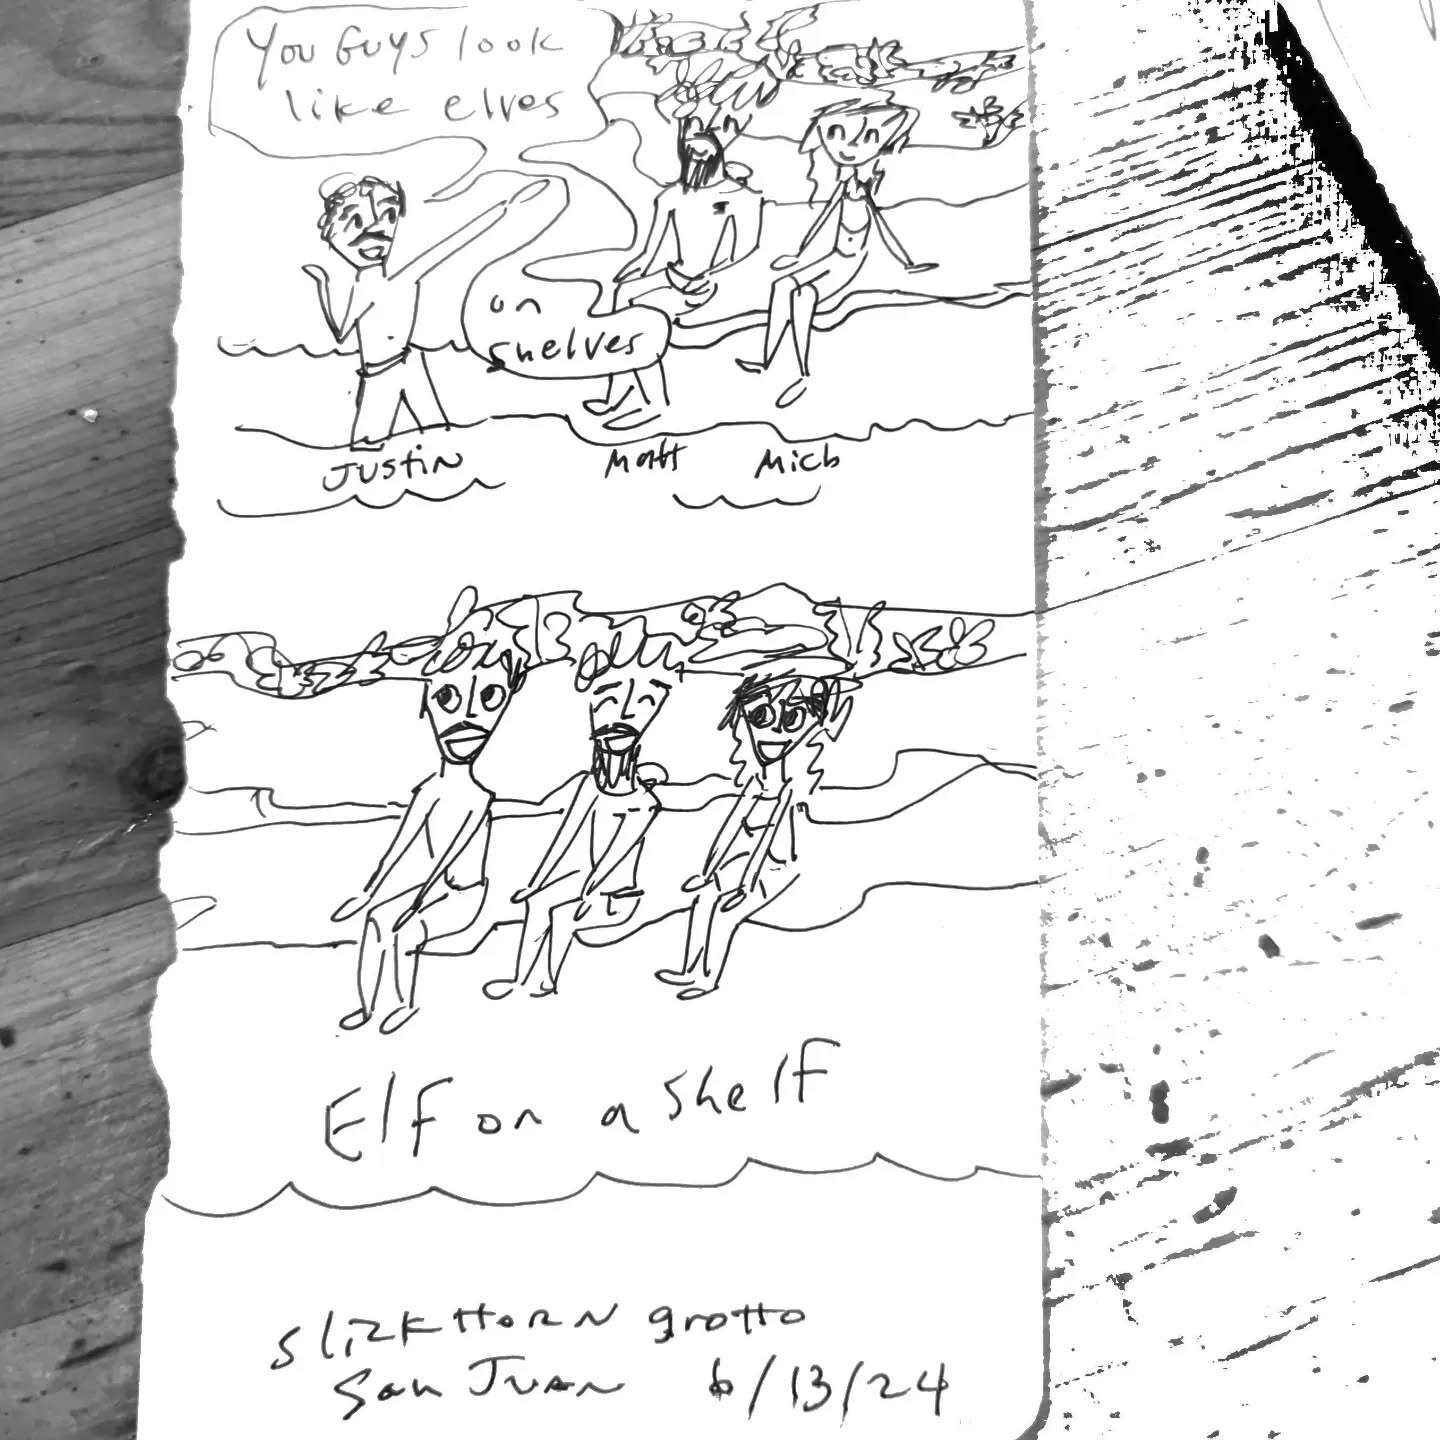 You Guys look
like elves
on
shelves
Justin
Matt
Mich
Elf on a shelf
slickHorn grotto
San Juan 6/13/24